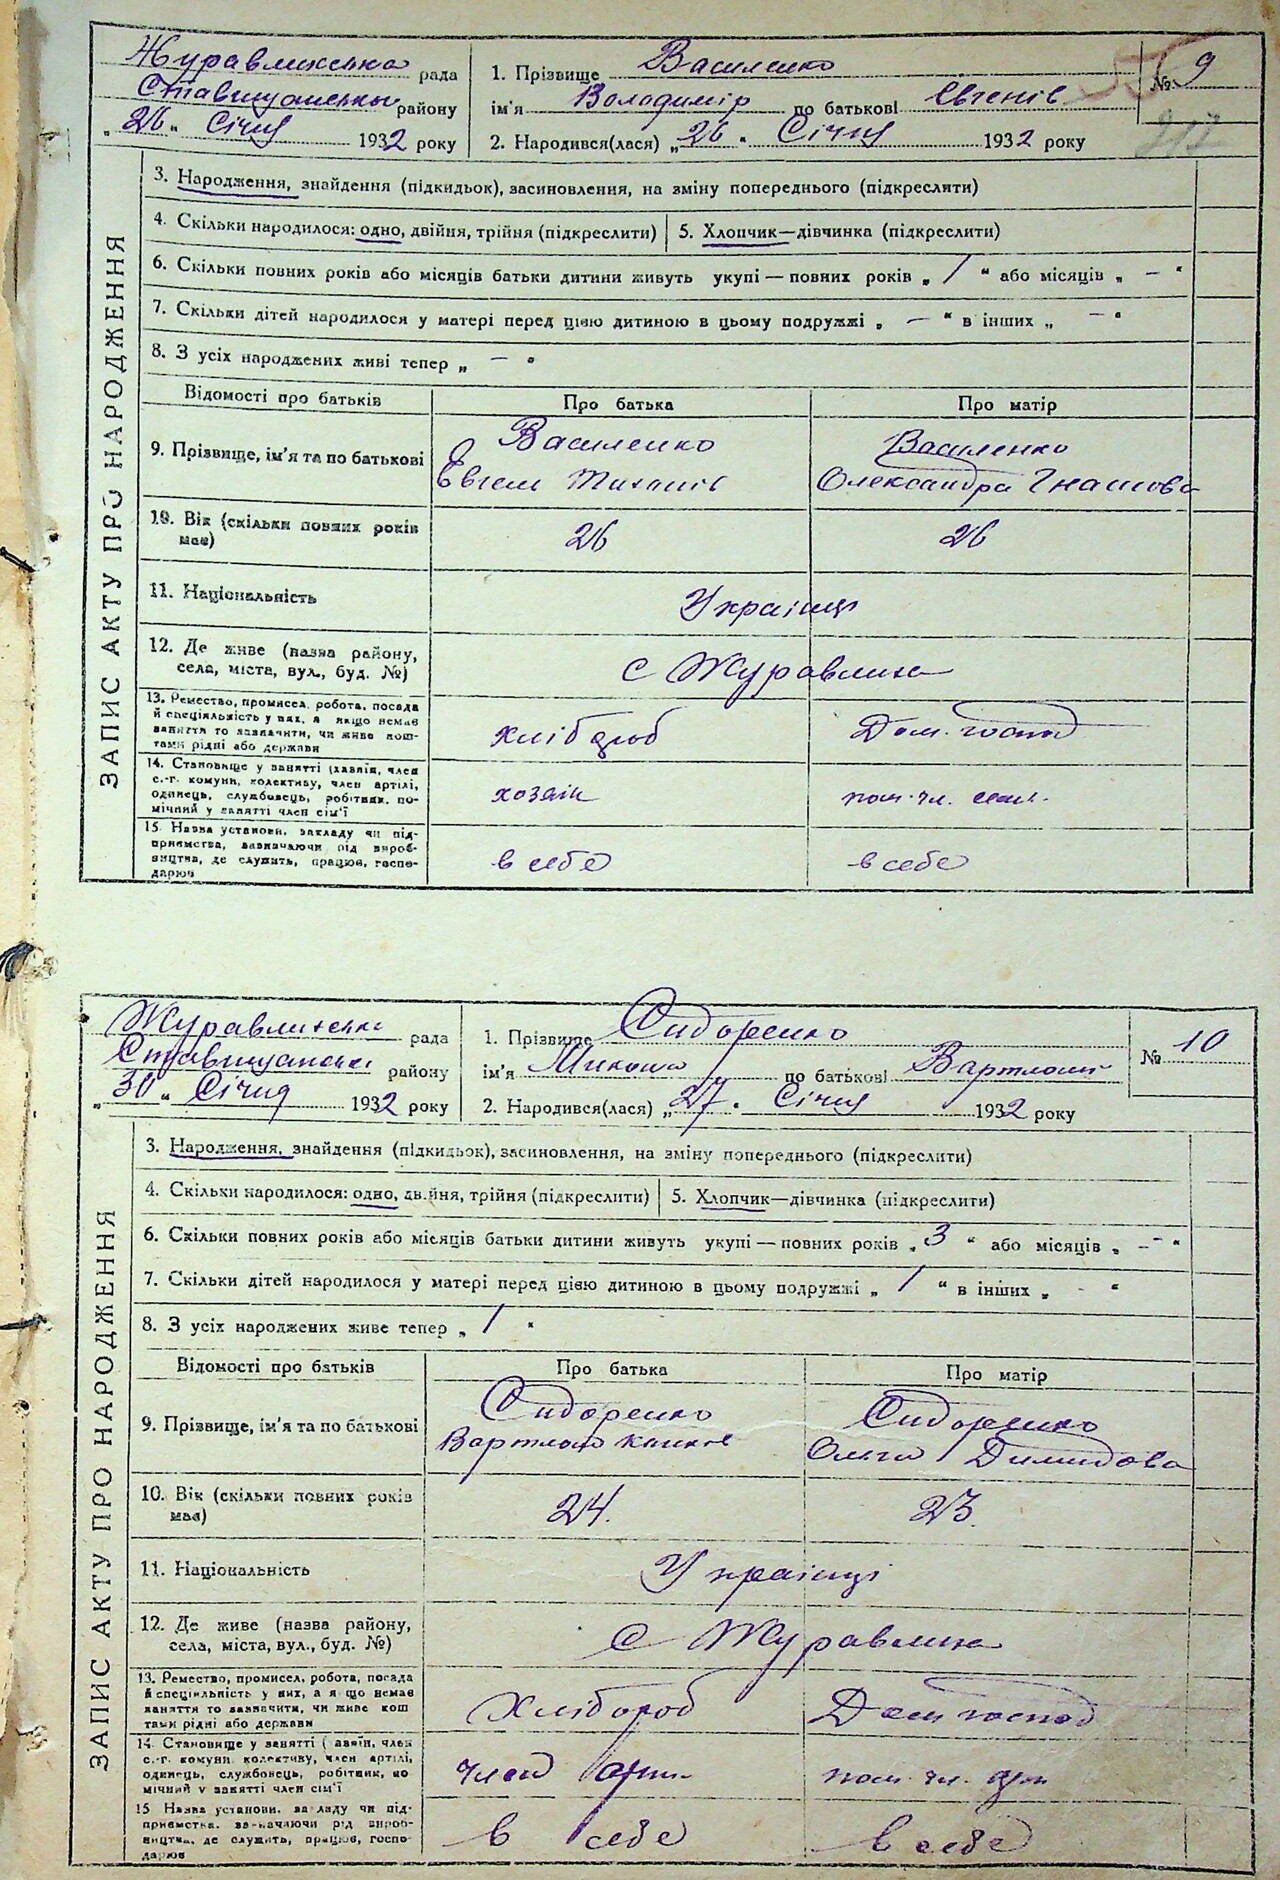 Журавлинська рада
Ставищанськ району
„26“ Січня 1932 року
1. Прізвище Василенко
ім'я Володимір по батькові Євгенів
2. Народився(лася) „26“ Січня 1932 року
№ 9
ЗАПИС АКТУ ПРО НАРОДЖЕННЯ
3. Народження, знайдення (підкидьок), засиновлення, на зміну попереднього (підкреслити)
4. Скільки народилося: одно, двійня, трійня (підкреслити) 5. Хлопчик—дівчинка (підкреслити)
6. Скільки повних років або місяців батьки дитини живуть укупі — повних років „ 1 “ або місяців „ — “
7. Скільки дітей народилося у матері перед цією дитиною в цьому подружжі „ — “ в інших „ — “
8. З усіх народжених живі тепер „ — “
Відомості про батьків Про батька Про матір
9. Прізвище, ім'я та по батькові
Василенко
Євген
Василенко
Олександра Гнатова
10. Вік (скільки повних років має) 26 26
11. Національність Українці
12. Де живе (назва району,
села, міста, вул., буд. №) с Журавлиха
13. Ремество, промисел, робота, посада
й спеціяльність у них, а якщо немає
заняття то зазначити, чи живе кош-
тами рідні або держави
хлібороб Дом. господ
14. Становище у занятті (хазяїн, член
с.-г. комуни, колективу, член артілі,
одинець, службовець, робітник, по-
мічний у занятті член сім'ї
хозяін пом. чл. сем.
15. Назва установи, закладу чи під-
приємства, зазначаючи рід вироб-
ництва, де служить, працює, госпо-
дарює
в себе в себе
Журавлинська рада
Ставищанськ району
„30“ Січня 1932 року
1. Прізвище Сидоренко
ім'я Микола по батькові
2. Народився(лася) „27“ Січня 1932 року
№ 10
ЗАПИС АКТУ ПРО НАРОДЖЕННЯ
3. Народження, знайдення (підкидьок), засиновлення, на зміну попереднього (підкреслити)
4. Скільки народилося: одно, двійня, трійня (підкреслити) 5. Хлопчик—дівчинка (підкреслити)
6. Скільки повних років або місяців батьки дитини живуть укупі — повних років „ 3 “ або місяців „ — “
7. Скільки дітей народилося у матері перед цією дитиною в цьому подружжі „ 1 “ в інших „ - “
8. З усіх народжених живе тепер „ 1 “
Відомості про батьків Про батька Про матір
9. Прізвище, ім'я та по батькові
Сидоренко
Сидоренко
Ольга Демидова
10. Вік (скільки повних років має) 24. 23.
11. Національність Українці
12. Де живе (назва району,
села, міста, вул., буд. №) с Журавлиха
13. Ремество, промисел, робота, посада
й спеціяльність у них, а якщо немає
заняття то зазначити, чи живе кош
тами рідні або держави
Хлібороб Дом господ
14. Становище у занятті (хазяїн, член
с.-г. комуни колективу, член артілі,
одинець, службовець, робітник, по
мічний у занятті член сім'ї
член арт. пом. чл.
15 Назва установи, закладу чи під-
приємства, зазначаючи рід вироб-
ництва, де служить, працює, госпо-
дарює
в себе в себе